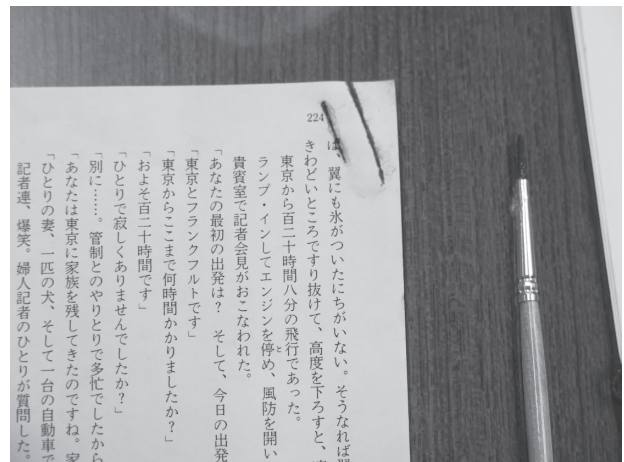 224
は、翼にも氷がついたにちがいない。そうなれば翼
きわどいところですり抜けて、高度を下ろすと、
東京から百二十時間八分の飛行であった。
ランプ・インしてエンジンを停め、風防を開い
貴賓室で記者会見がおこなわれた。
「あなたの最初の出発は? そして、今日の出発
「東京とフランクフルトです」
「東京からここまで何時間かかりましたか?」
「およそ百二十時間です」
「ひとりで寂しくありませんでしたか?」
「別に……。管制とのやりとりで多忙でしたから
「あなたは東京に家族を残してきたのですね。家
「ひとりの妻、一匹の犬、そして一台の自動車で
記者連、爆笑。婦人記者のひとりが質問した。